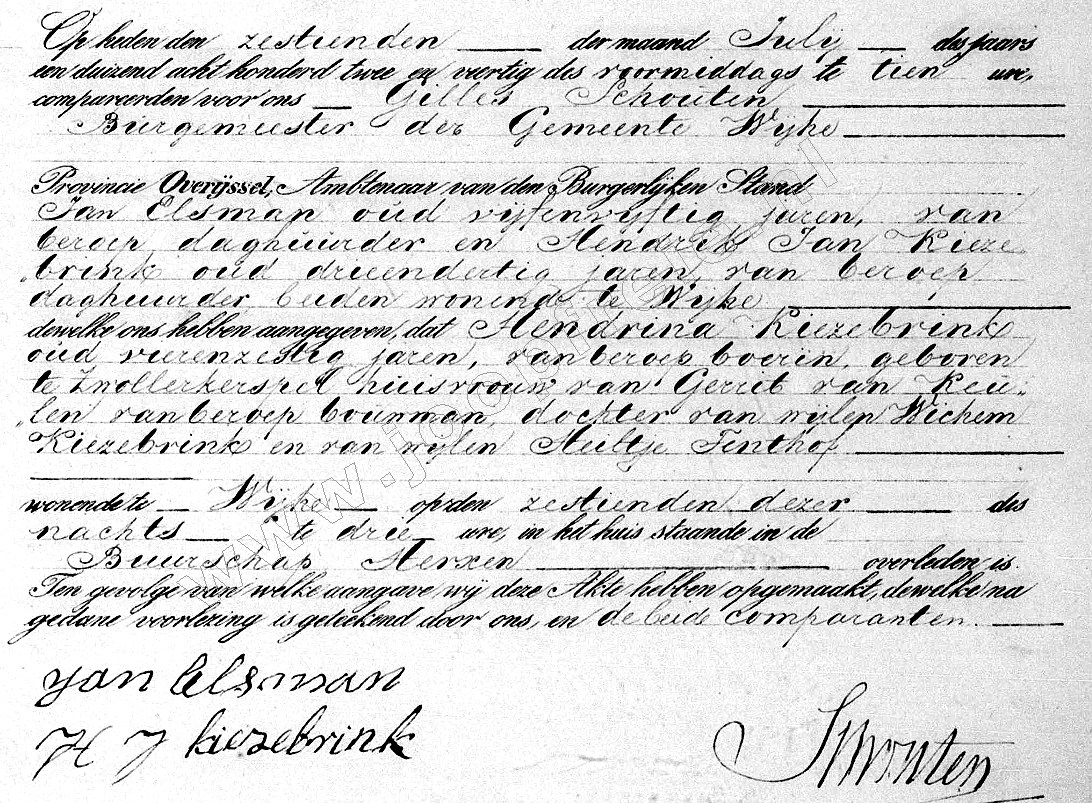 Op heden den zestienden der maand July des jaars
een duizend acht honderd twee en veertig des voormiddags te tien ure,
compareerden voor ons Gilles Schouten,
Burgemeester der Gemeente Wijhe
Provincie Overijssel, Ambtenaar van den Burgerlijken Stand
Jan Elsman oud vijfenvijftig jaren, van
beroep daghuurder en Hendrik Jan Kieze
„brink oud drieendertig jaren, van beroep
daghuurder beiden wonende te Wijhe
dewelke ons hebben aangegeven, dat Hendrina Kiezebrink
oud vierenzestig jaren, van beroep boerin, geboren
te Zwollerkerspel huisvrouw van Gerrit van Keu-
„len van beroep bouwman, dochter van wijlen Wichem
Kiezebrink en van wylen Aeltje
wonende te Wijhe op den zestienden dezer des
nachts te drie ure, in het huis staande in de
Buurschap Herxen overleden is.
Ten gevolge van welke aangave wij deze Akte hebben opgemaakt, dewelke na
gedane voorlezing is geteekend door ons, en de beide comparanten.
Jan Elsman
H J kiezebrink
Schouten